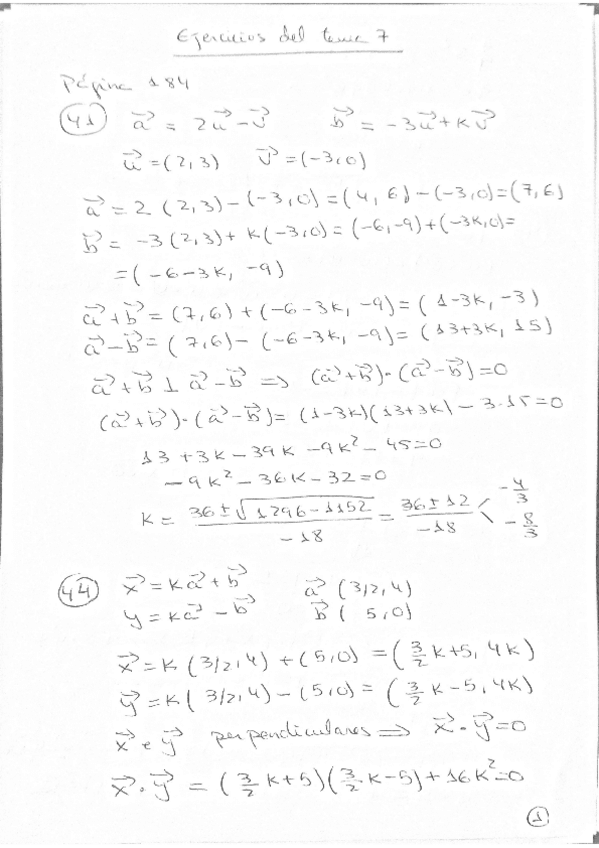 Ejercicios del tema 7
Página 184
41 a⃗ = 2u⃗ - v⃗ b⃗ = -3u⃗ + kv⃗
u⃗ = (2,3) v⃗ = (-3,0)
a⃗ = 2 (2,3) - (-3,0) = (4,6) - (-3,0) = (7,6)
b⃗ = -3(2,3) + k(-3,0) = (-6,-9) + (-3k,0) =
= (-6-3k, -9)
a⃗ + b⃗ = (7,6) + (-6-3k, -9) = (1-3k, -3)
a⃗ - b⃗ = (7,6) - (-6-3k, -9) = (13+3k, 15)
a⃗ + b⃗ ⊥ a⃗ - b⃗ ⇒ (a⃗ + b⃗)·(a⃗ - b⃗) = 0
(a⃗ + b⃗)·(a⃗ - b⃗) = (1-3k)(13+3k) - 3·15 = 0
13 + 3k - 39k - 9k² - 45 = 0
-9k² - 36k - 32 = 0
k = (36 ± √(1296-1152))/(-18) = (36 ± 12)/(-18) < -4/3
-8/3
44 x⃗ = ka⃗ + b⃗ a⃗ (3/2, 4)
y = ka⃗ - b⃗ b⃗ (5,0)
x⃗ = k (3/2, 4) + (5,0) = (3/2 k+5, 4k)
y⃗ = k (3/2, 4) - (5,0) = (3/2 k-5, 4k)
x⃗ e y⃗ perpendiculares ⇒ x⃗ · y⃗ = 0
x⃗ · y⃗ = (3/2 k+5)(3/2 k-5) + 16k² = 0
1